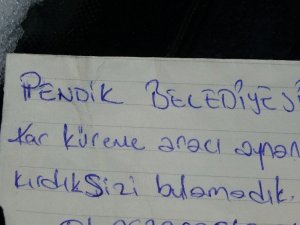 PENDİK BELEDİYESİ
Kar küreme aracı aynan
kırdık Sizi bulamadık.